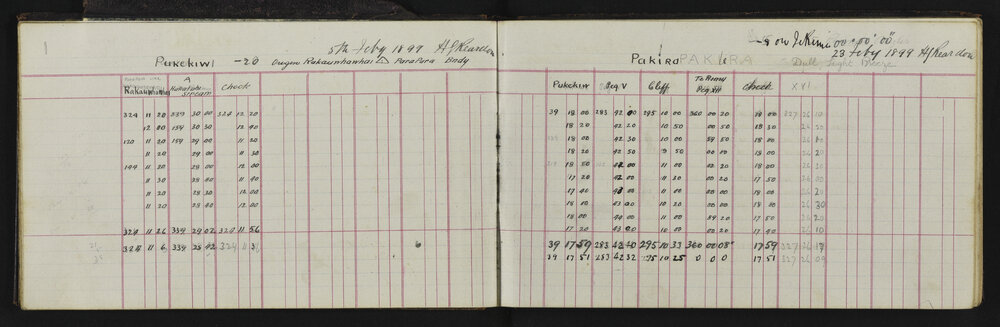 1
5th Feby 1899 HJReardon
Pukekiwi -20 Rakaunhanhai Δ Parapara Body
A
Check
Stream
324 11 20 339 30 00 324 12 20
12 00 159 30 30 12 40
120 11 20 159 29 00 12 00
11 20 29 00 11 30
144 11 20 28 00 12 00
11 30 28 40 11 30
11 20 28 30 12 00
11 20 28 40 12 00
324 11 26 339 29 02 324 11 56
324 11 6 339 28 42 324 11
00° 00' 00"
23 Feby 1899 HJReardon
Pakira PAKIRA Dull Light Breeze
Pukekiwi Peg V Cliff Peg XII Check XVI
39 18 00 283 42 00 295 10 00 360 00 20 18 00 327 26 10
18 20 42 20 10 50 00 50 18 30 26 20
18 00 42 00 11 00 59 50 18 00 26 10
18 20 42 50 9 50 00 00 18 20 26 20
18 50 42 00 11 00 42 20 18 00 26 30
17 20 42 00 11 00 00 20 17 50 26 00
17 40 42 00 11 00 00 00 18 00 26 20
18 10 43 00 10 20 00 20 18 00 26 30
18 00 40 00 11 00 59 20 17 50 26 20
17 20 43 00 10 00 00 20 17 40 26 10
39 17 59 283 42 10 295 10 33 360 00 08 17 59 327 26 19
39 17 51 283 42 32 295 10 25 0 0 0 17 51 327 26 09